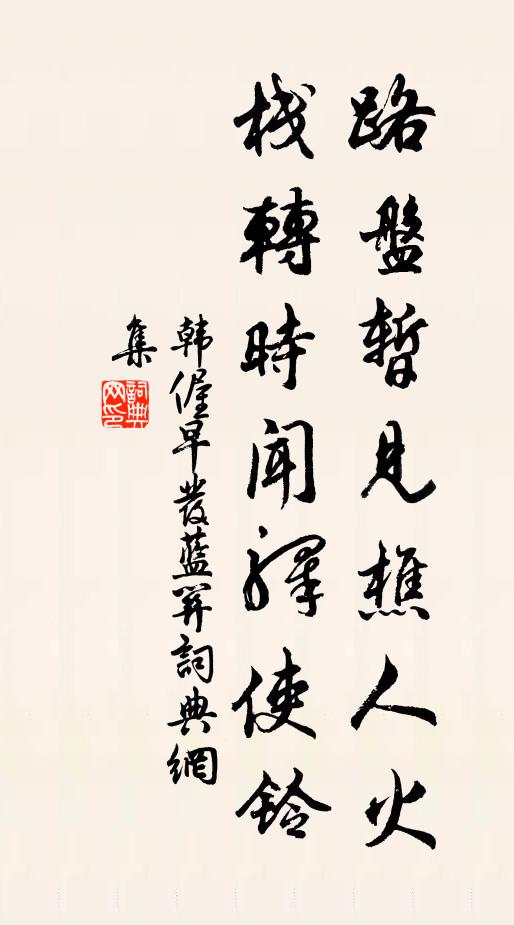 路盤暫見樵人火
棧轉時聞驛使鈴
韩偓早發藍關詞典網
集
詞典
网印